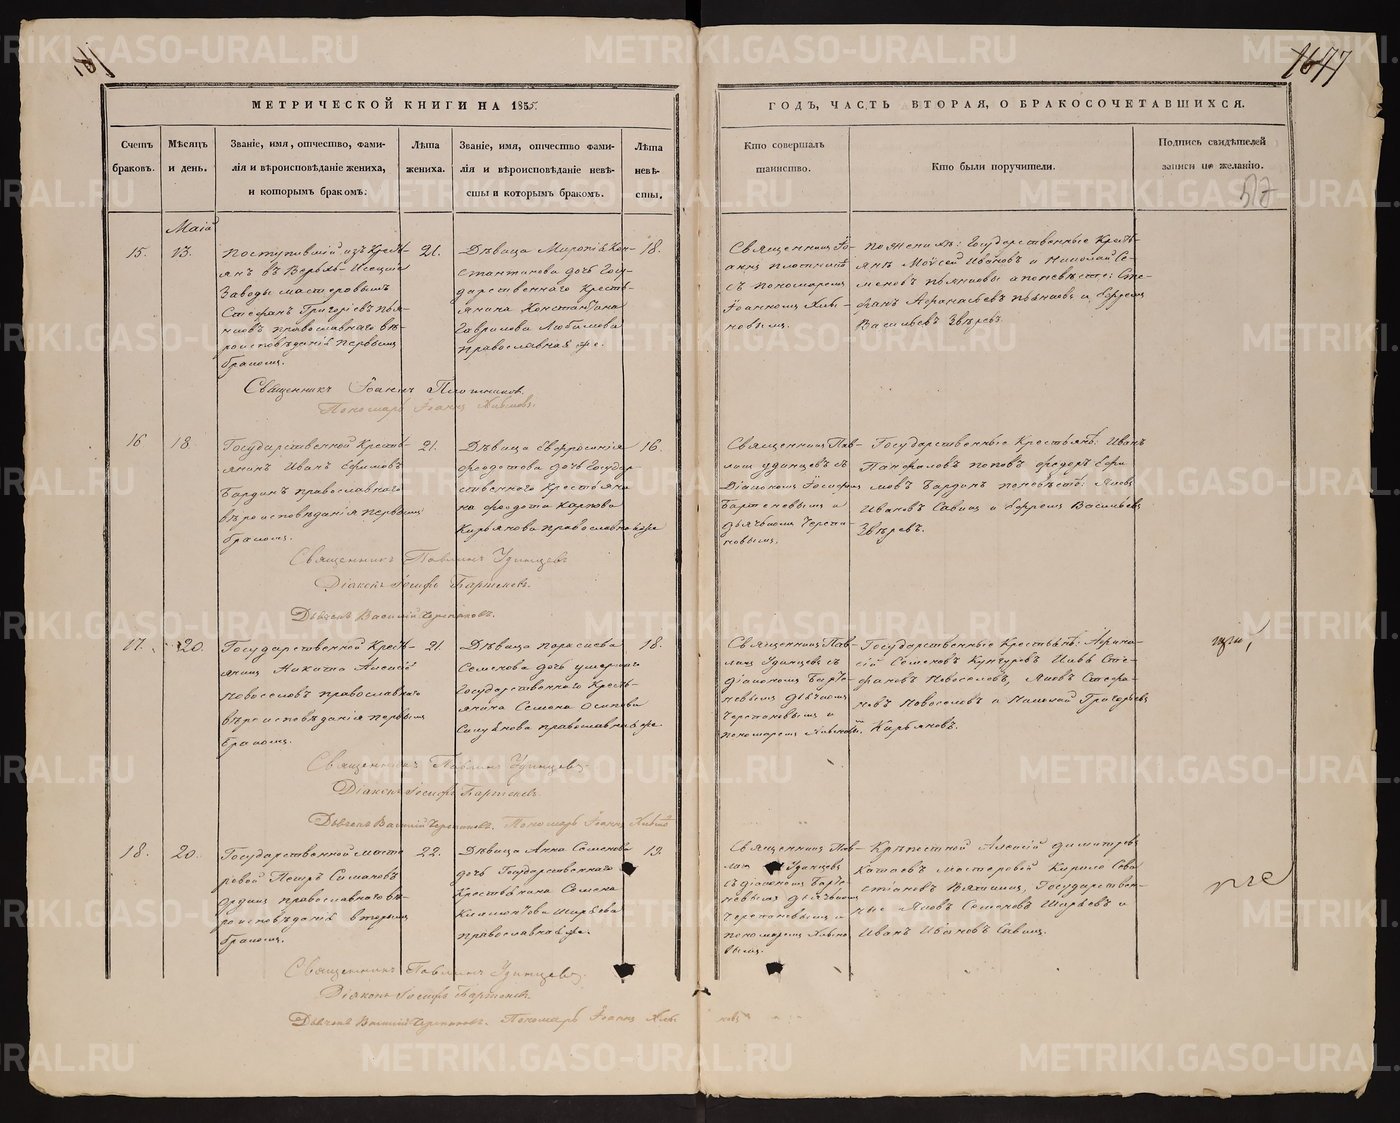 1677
МЕТРИЧЕСКОЙ КНИГИ НА 1855
ГОДЪ, ЧАСТЬ ВТОРАЯ, О БРАКОСОЧЕТАВШИХСЯ.
Счетъ браковъ.
Мѣсяцъ и день.
Званіе, имя, отчество, фами-
лія и вѣроисповѣданіе жениха,
и которымъ бракомъ.
Лѣта жениха.
Званіе, имя, отчество фами-
лія и вѣроисповѣданіе невѣ-
сты и которымъ бракомъ.
Лѣта невѣ-
сты.
Кто совершалъ
таинство.
Кто были поручители.
Подпись свидѣтелей
записи по желанію.
57
Маій
15.
13.
Поступившій изъ Кресть-
янъ въ Верхъ-Исецкіе
Заводы мастеровымъ
Стефанъ Григорьевъ
православнаго вѣ-
роисповѣданія первымъ
бракомъ.
21.
Дѣвица Миропія Кон-
стантинова дочь Госу-
дарственнаго Кресть-
янина Константина
Гаврилова Любимова
православная же.
18.
Священникъ Іо-
аннъ Плотниковъ
съ пономаремъ
Іоанномъ Хлы-
новымъ.
по женихѣ: Государственные Кресть-
янѣ Моѵсей Ивановъ и Николай Се-
меновъ Пьянковы а по невѣстѣ: Сте-
фанъ Афанасьевъ Пьянковъ и Ефремъ
Васильевъ Звѣревъ.
Священникъ Іоаннъ Плотниковъ.
Пономарь Іоаннъ Хлыновъ.
16
18.
Государственной Кресть-
янинъ Иванъ Ефимовъ
Бардинъ православнаго
вѣроисповѣданія первымъ
бракомъ.
21.
Дѣвица Евфросинія
Феодотова дочь Государ-
ственнаго Крестьяни-
на Феодота Карпова
Кирьянова православная же
16.
Священникъ Пав-
линъ Удинцевъ съ
Діакономъ Іосифомъ
Бартеневымъ и
дьячкомъ Черепа-
новымъ.
Государственные Крестьянѣ: Иванъ
Панфиловъ Поповъ Федоръ Ефи-
мовъ Бардинъ по невѣстѣ: Яковъ
Ивановъ Савинъ и Ефремъ Васильевъ
Звѣревъ.
Священникъ Павлинъ Удинцевъ
Діаконъ Іосифъ Бартеневъ.
Дьячекъ Василій Черепановъ.
17.
20.
Государственной Кресть-
янинъ Никита Алексѣевъ
Новоселовъ православнаго
вѣроисповѣданія первымъ
бракомъ.
21.
Дѣвица Параскева
Семенова дочь умершаго
Государственнаго Кресть-
янина Семена Осипова
православная же.
18.
Священникъ Пав-
линъ Удинцевъ съ
діакономъ Барте-
невымъ дьячкомъ
Черепановымъ и
пономаремъ Хлыновымъ.
Государственные Крестьянѣ: Афана-
сій Семеновъ Кунгуровъ Ивъ Сте-
фановъ Новоселовъ, Яковъ Стефа-
новъ Новоселовъ и Николай Григорьевъ
Кирьяновъ.
Священникъ Павлинъ Удинцевъ.
Діаконъ Іосифъ Бартеневъ.
Дьячекъ Василій Черепановъ. Пономарь Іоаннъ Хлыновъ
18.
20.
Государственной масте-
ровой Петръ Симановъ
православнаго вѣ-
роисповѣданія вторымъ
бракомъ.
22.
Дѣвица Анна Семенова
дочь Государственнаго
Крестьянина Семена
Климонтова Ширяева
православная же.
Священникъ Пав-
линъ Удинцевъ
съ діакономъ Барте-
невымъ дьячкомъ
Черепановымъ и
пономаремъ Хлыно-
вымъ.
Крѣпостной Алексій Димитріевъ
Катаевъ Мастеровой Кирило Сева-
стіановъ Вяткинъ, Государствен-
ные Яковъ Семеновъ Ширяевъ и
Иванъ Ивановъ Савинъ.
Священникъ Павлинъ Удинцевъ.
Діаконъ Іосифъ Бартеневъ.
Дьячекъ Василій Черепановъ. Пономарь Іоаннъ Хлыновъ
METRIKI.GASO-URAL.RU